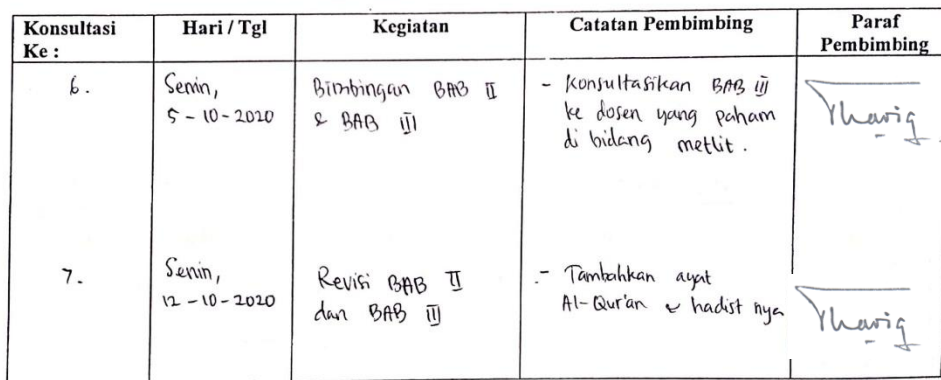 Konsultasi Ke :
Hari / Tgl
Kegiatan
Catatan Pembimbing
Paraf Pembimbing
6.
Senin,
5 - 10 - 2020
Bimbingan BAB II
& BAB III
- Konsultasikan BAB III
ke dosen yang paham
di bidang metlit.
Thariq
7.
Senin,
12 - 10 - 2020
Revisi BAB II
dan BAB III
- Tambahkan ayat
Al-Qur'an & hadist nya
Thariq